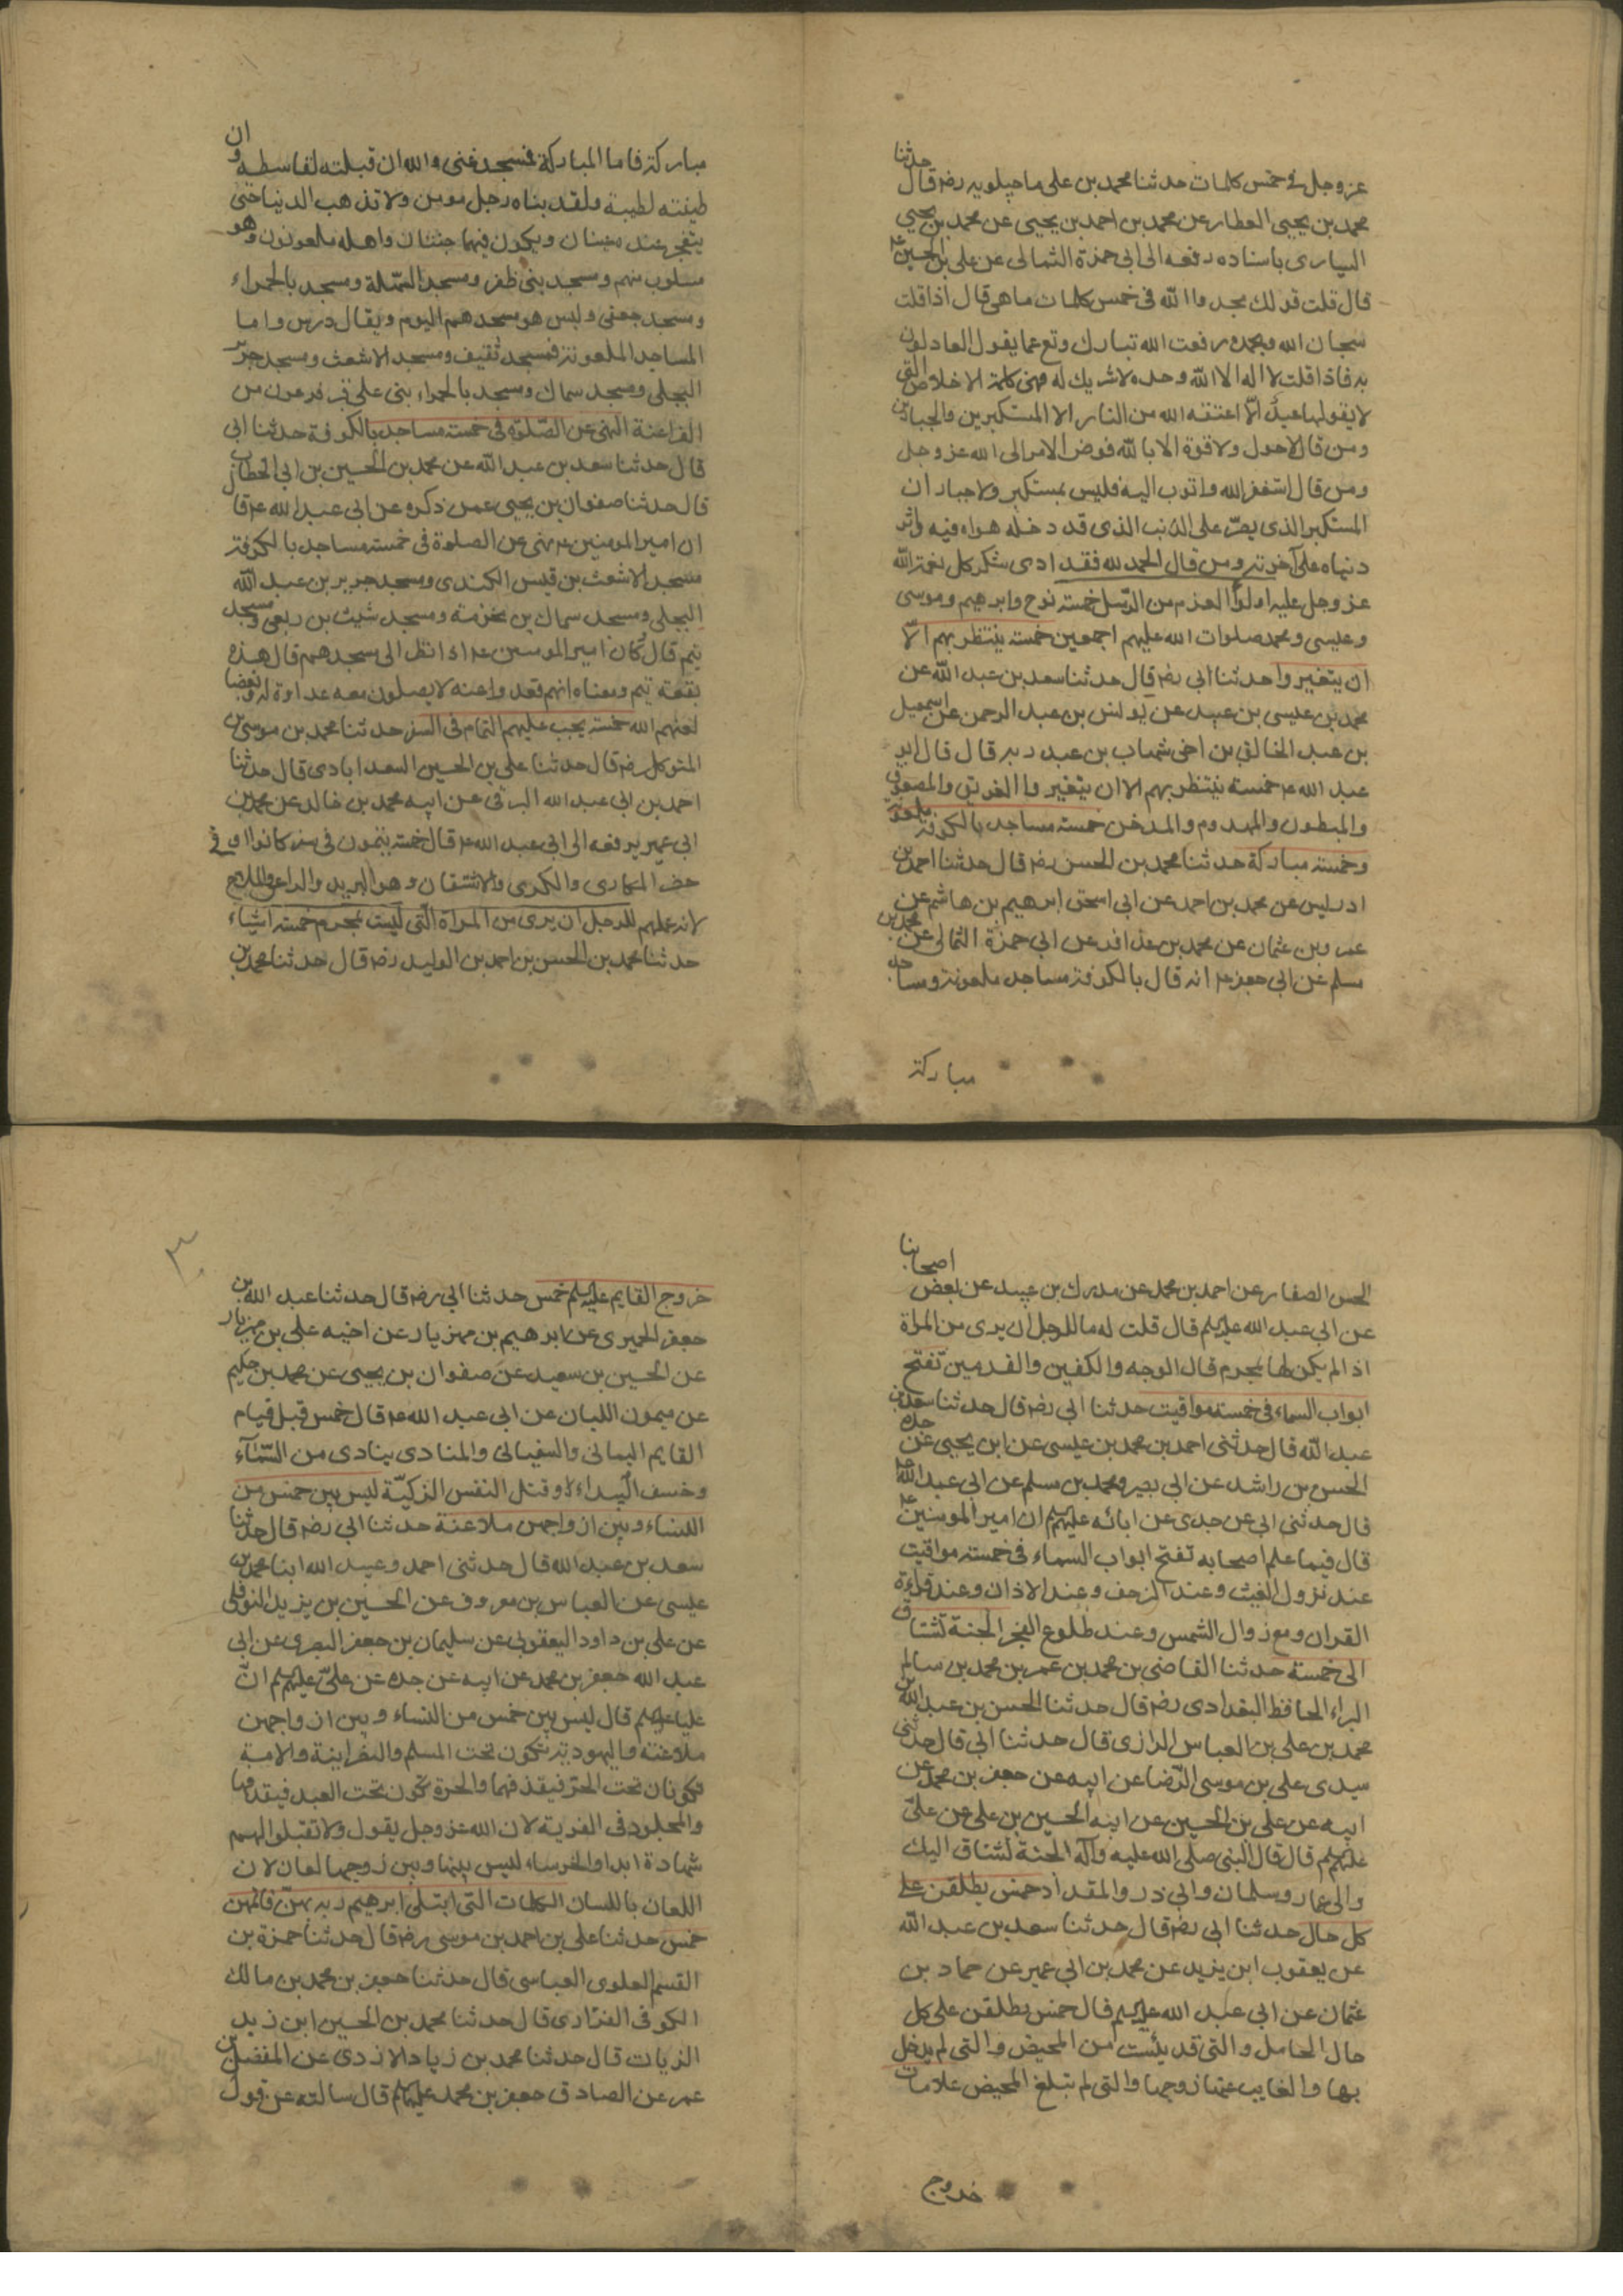 عز وجل فى خمس كلمات حدثنا محمد بن على ماجيلويه رضه قال حدثنا
محمد بن يحيى العطار عن محمد بن احمد بن يحيى عن محمد بن يحيى
باسناده رفعه الى ابى حمزة الثمالى عن على بن الحسين ع
قال قلت قولك مجدوا الله فى خمس كلمات ما هى قال اذا قلت
سبحان الله وبحمده رفعت الله تبارك وتع عما يقول العادلون
به فاذا قلت لا اله الا الله وحده لا شريك له فهى كلمة الاخلاص التى
لا يقولها عبد الا اعتقه الله من النار الا المستكبرين والجبارين
ومن قال لا حول ولا قوة الا بالله فوض الامر الى الله عز وجل
ومن قال استغفر الله واتوب اليه فليس بمستكبر ولا جبار ان
المستكبر الذى يصر على الذنب الذى قد دخله هواه فيه واثر
دنياه على آخرته ومن قال الحمد لله فقد ادى شكر كل نعمة الله
عز وجل عليه اولوا العزم من الرسل خمسة نوح وابرهيم وموسى
وعيسى ومحمد صلوات الله عليهم اجمعين خمسة ينتظر بهم الا
ان يتغيروا حدثنا ابى رضه قال حدثنا سعد بن عبد الله عن
محمد بن عيسى بن عبيد عن يونس بن عبد الرحمن عن اسمعيل
بن عبد الخالق بن اخى شهاب بن عبد ربه قال قال ابو
عبد الله ع خمسة ينتظر بهم الا ان يتغيروا الغريق والمصعوق
والمبطون والمهدوم والمدخن خمسة مساجد بالكوفة ملعونة
وخمسة مباركة حدثنا محمد بن الحسن رضه قال حدثنا احمد بن
ادريس عن محمد بن احمد عن ابى اسحق ابرهيم بن هاشم عن
عمرو بن عثمان عن محمد بن عذافر عن ابى حمزة الثمالى عن محمد بن
مسلم عن ابى جعفر ع انه قال بالكوفة مساجد ملعونة ومساجد
مباركة
مباركة فاما المباركة فمسجد غنى والله ان قبلته لقاسطة وان
طينته لطيبة ولقد بناه رجل مومن ولا تذهب الدنيا حتى
يتفجر عنده عينان ويكون فيها جنتان واهله ملعونون وهو
مسلوب منهم ومسجد بنى ظفر ومسجد السهلة ومسجد بالحمراء
ومسجد جعفى وليس هو مسجدهم اليوم ويقال درس واما
المساجد الملعونة فمسجد ثقيف ومسجد الاشعث ومسجد جرير
البجلى ومسجد سماك ومسجد بالحمراء بنى على قبر فرعون من
الفراعنة النهى عن الصلوة فى خمسة مساجد بالكوفة حدثنا ابى
قال حدثنا سعد بن عبد الله عن محمد بن الحسين بن ابى الخطاب
قال حدثنا صفوان بن يحيى عمن ذكره عن ابى عبد الله ع قال
ان امير المومنين ع نهى عن الصلوة فى خمسة مساجد بالكوفة
مسجد الاشعث بن قيس الكندى ومسجد جرير بن عبد الله
البجلى ومسجد سماك بن مخرمة ومسجد شبث بن ربعى ومسجد
تيم قال كان امير المومنين ع اذا نظر الى مسجدهم قال هذه
بقعة تيم ومعناه انهم قعدوا عنه لا يصلون معه عداوة له وبغضا
لعنهم الله خمسة يجب عليهم التمام فى السفر حدثنا محمد بن موسى بن
المتوكل رضه قال حدثنا على بن الحسين السعدابادى قال حدثنا
احمد بن ابى عبد الله البرقى عن ابيه محمد بن خالد عن محمد بن
ابى عمير يرفعه الى ابى عبد الله ع قال خمسة يتمون فى سفر كانوا او فى
حضر المكارى والكرى والاشتقان وهو البريد والراعى والملاح
لانه عملهم للرجل ان يرى من المراة التى ليست بمحرم خمسة اشياء
حدثنا محمد بن الحسن بن احمد بن الوليد رضه قال حدثنا محمد بن
الحسن الصفار عن احمد بن محمد عن مدرك بن عبيد عن بعض اصحابنا
عن ابى عبد الله عليه السلم قال قلت له ما للرجل ان يرى من المراة
اذا لم يكن لها بمحرم قال الوجه والكفين والقدمين تفتح
ابواب السماء فى خمسة مواقيت حدثنا ابى رضه قال حدثنا سعد بن
عبد الله قال حدثنى احمد بن محمد بن عيسى عن ابن يحيى عن جده
الحسن بن راشد عن ابى بصير ومحمد بن مسلم عن ابى عبد الله ع
قال حدثنى ابى عن جدى عن ابائه عليهم السلم ان امير المومنين ع
قال فيما علم اصحابه تفتح ابواب السماء فى خمسة مواقيت
عند نزول الغيث وعند الزحف وعند الاذان وعند قراءة
القران ومع زوال الشمس وعند طلوع الفجر الجنة تشتاق
الى خمسة حدثنا القاضى بن محمد بن عمر بن محمد بن سالم
البراء الحافظ البغدادى رضه قال حدثنا الحسن بن عبد الله بن
محمد بن على بن العباس الرازى قال حدثنا ابى قال حدثنى
سيدى على بن موسى الرضا عن ابيه عن جعفر بن محمد عن
ابيه عن على بن الحسين عن ابيه الحسين بن على عن على
عليهم السلم قال قال النبى صلى الله عليه وآله الجنة تشتاق اليك
والى عمار وسلمان وابى ذر والمقداد خمس يطلقن على
كل حال حدثنا ابى رضه قال حدثنا سعد بن عبد الله
عن يعقوب ابن يزيد عن محمد بن ابى عمير عن حماد بن
عثمان عن ابى عبد الله عليه السلم قال خمس يطلقن على كل
حال الحامل والتى قد يئست من المحيض والتى لم يدخل
بها والغايب عنها زوجها والتى لم تبلغ المحيض علامات
خروج
٣٠
خروج القايم عليه السلم خمس حدثنا ابى رضه قال حدثنا عبد الله بن
جعفر الحميرى عن ابرهيم بن مهزيار عن اخيه على بن مهزيار
عن الحسين بن سعيد عن صفوان بن يحيى عن محمد بن حكيم
عن ميمون اللبان عن ابى عبد الله ع قال خمس قبل قيام
القايم اليمانى والسفيانى والمنادى ينادى من السماء
وخسف البيداء وقتل النفس الزكية ليس بين خمس من
النساء وبين ازواجهن ملاعنة حدثنا ابى رضه قال حدثنا
سعد بن عبد الله قال حدثنى احمد وعبيد الله ابنا محمد بن
عيسى عن العباس بن معروف عن الحسين بن يزيد النوفلى
عن على بن داود اليعقوبى عن سليمان بن جعفر البصرى عن ابى
عبد الله جعفر بن محمد عن ابيه عن جده عن على عليهم السلم ان
عليا عليه السلم قال ليس بين خمس من النساء وبين ازواجهن
ملاعنة واليهودية تكون تحت المسلم والنصرانية والامة
تكونان تحت الحر فيقذفهما والحرة تكون تحت العبد فيقذفها
والمجلود فى الفرية لان الله عز وجل يقول ولا تقبلوا لهم
شهادة ابدا والخرساء ليس بينها وبين زوجها لعان لان
اللعان باللسان الكلمات التى ابتلى ابرهيم ربه بهن فاتمهن
خمس حدثنا على بن احمد بن موسى رضه قال حدثنا حمزة بن
القسم العلوى العباسى قال حدثنا جعفر بن محمد بن مالك
الكوفى الفزارى قال حدثنا محمد بن الحسين ابن زيد
الزيات قال حدثنا محمد بن زياد الازدى عن المفضل بن
عمر عن الصادق جعفر بن محمد عليهما السلم قال سالته عن قول